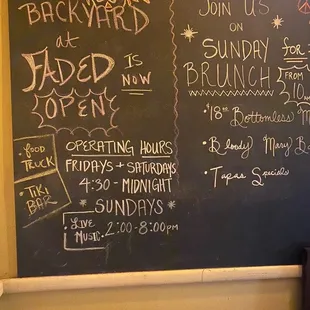 BACKYARD
at
JADED IS
NOW
OPEN
FOOD
TRUCK
TIKI
BAR
OPERATING HOURS
FRIDAYS + SATURDAYS
4:30 - MIDNIGHT
* SUNDAYS *
LIVE
MUSIC
2:00 - 8:00pm
JOIN US
ON
SUNDAY
BRUNCH
FROM
10
• $18 Bottomless M
• Bloody Mary Ba
• Tapas Specials